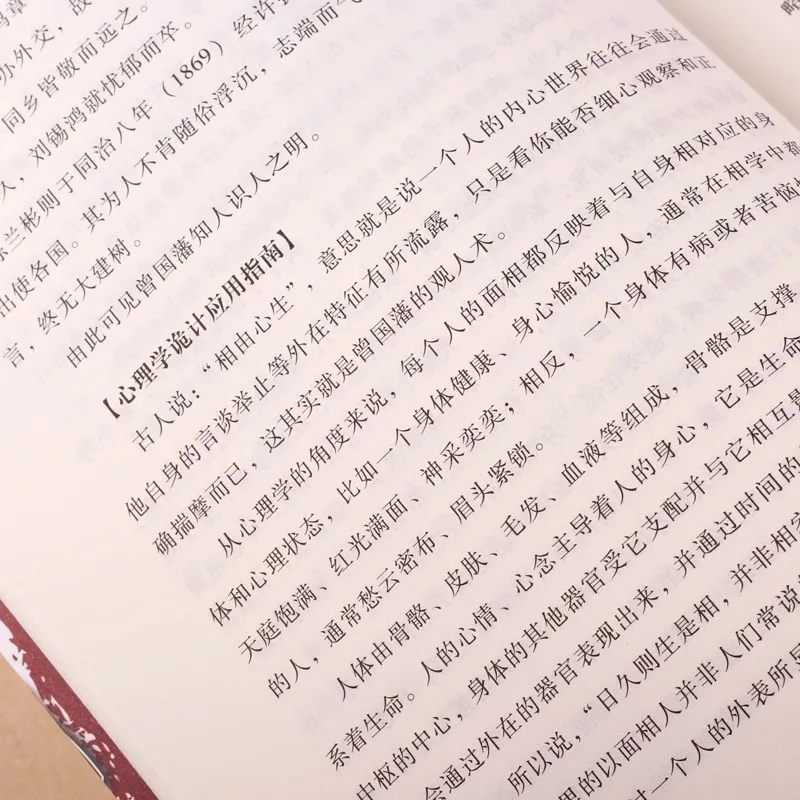 鸿章
办外交，故
同乡皆敬而远之。
久，刘锡鸿就忧郁而卒。
陈兰彬则于同治八年（1869）经许
出使各国。其为人不肯随俗浮沉，志端而气
言，终无大建树。
由此可见曾国藩知人识人之明。
【心理学诡计应用指南】
古人说：“相由心生”，意思就是说一个人的内心世界往往会通过
他自身的言谈举止等外在特征有所流露，只是看你能否细心观察和正
确揣摩而已，这其实就是曾国藩的观人术。
从心理学的角度来说，每个人的面相都反映着与自身相对应的身
体和心理状态，比如一个身体健康、身心愉悦的人，通常在相学中都
天庭饱满、红光满面、神采奕奕；相反，一个身体有病或者苦恼
的人，通常愁云密布、眉头紧锁。
人体由骨骼、皮肤、毛发、血液等组成，骨骼是支撑
系着生命。人的心情、心念主导着人的身心，它是生命
中枢的中心，身体的其他器官受它支配并与它相互影
会通过外在的器官表现出来，并通过时间的
所以说，“日久则生是相，并非相
里的以面相人并非人们常说
对一个人的外表所